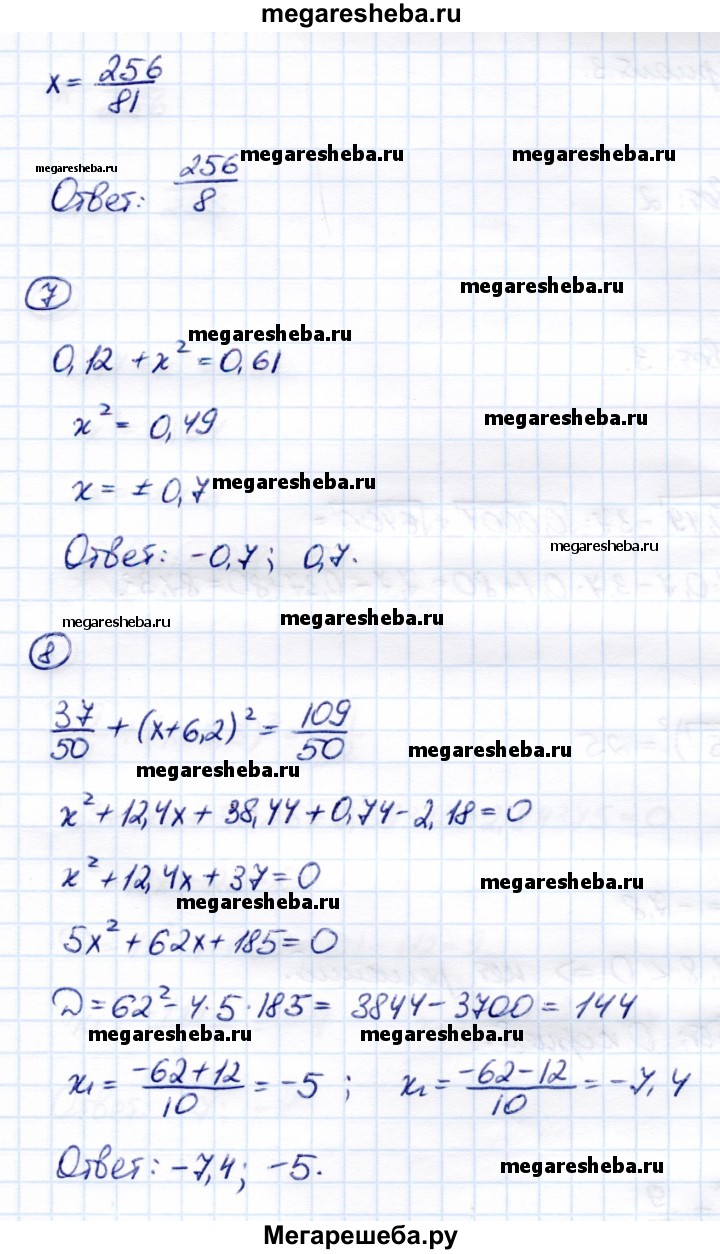 megaresheba.ru
x = 256/81
megaresheba.ru megaresheba.ru megaresheba.ru
Ответ: 256/8
7
megaresheba.ru
megaresheba.ru
0,12 + x² = 0,61
x² = 0,49
megaresheba.ru
x = ± 0,7
megaresheba.ru
Ответ: -0,7; 0,7.
megaresheba.ru
megaresheba.ru megaresheba.ru
8
37/50 + (x+6,2)² = 109/50
megaresheba.ru
megaresheba.ru
x² + 12,4x + 38,44 + 0,74 - 2,18 = 0
x² + 12,4x + 37 = 0
megaresheba.ru
megaresheba.ru
5x² + 62x + 185 = 0
D = 62² - 4·5·185 = 3844 - 3700 = 144
megaresheba.ru megaresheba.ru
x₁ = (-62+12)/10 = -5; x₂ = (-62-12)/10 = -7,4
Ответ: -7,4; -5.
megaresheba.ru
Мегарешеба.ру